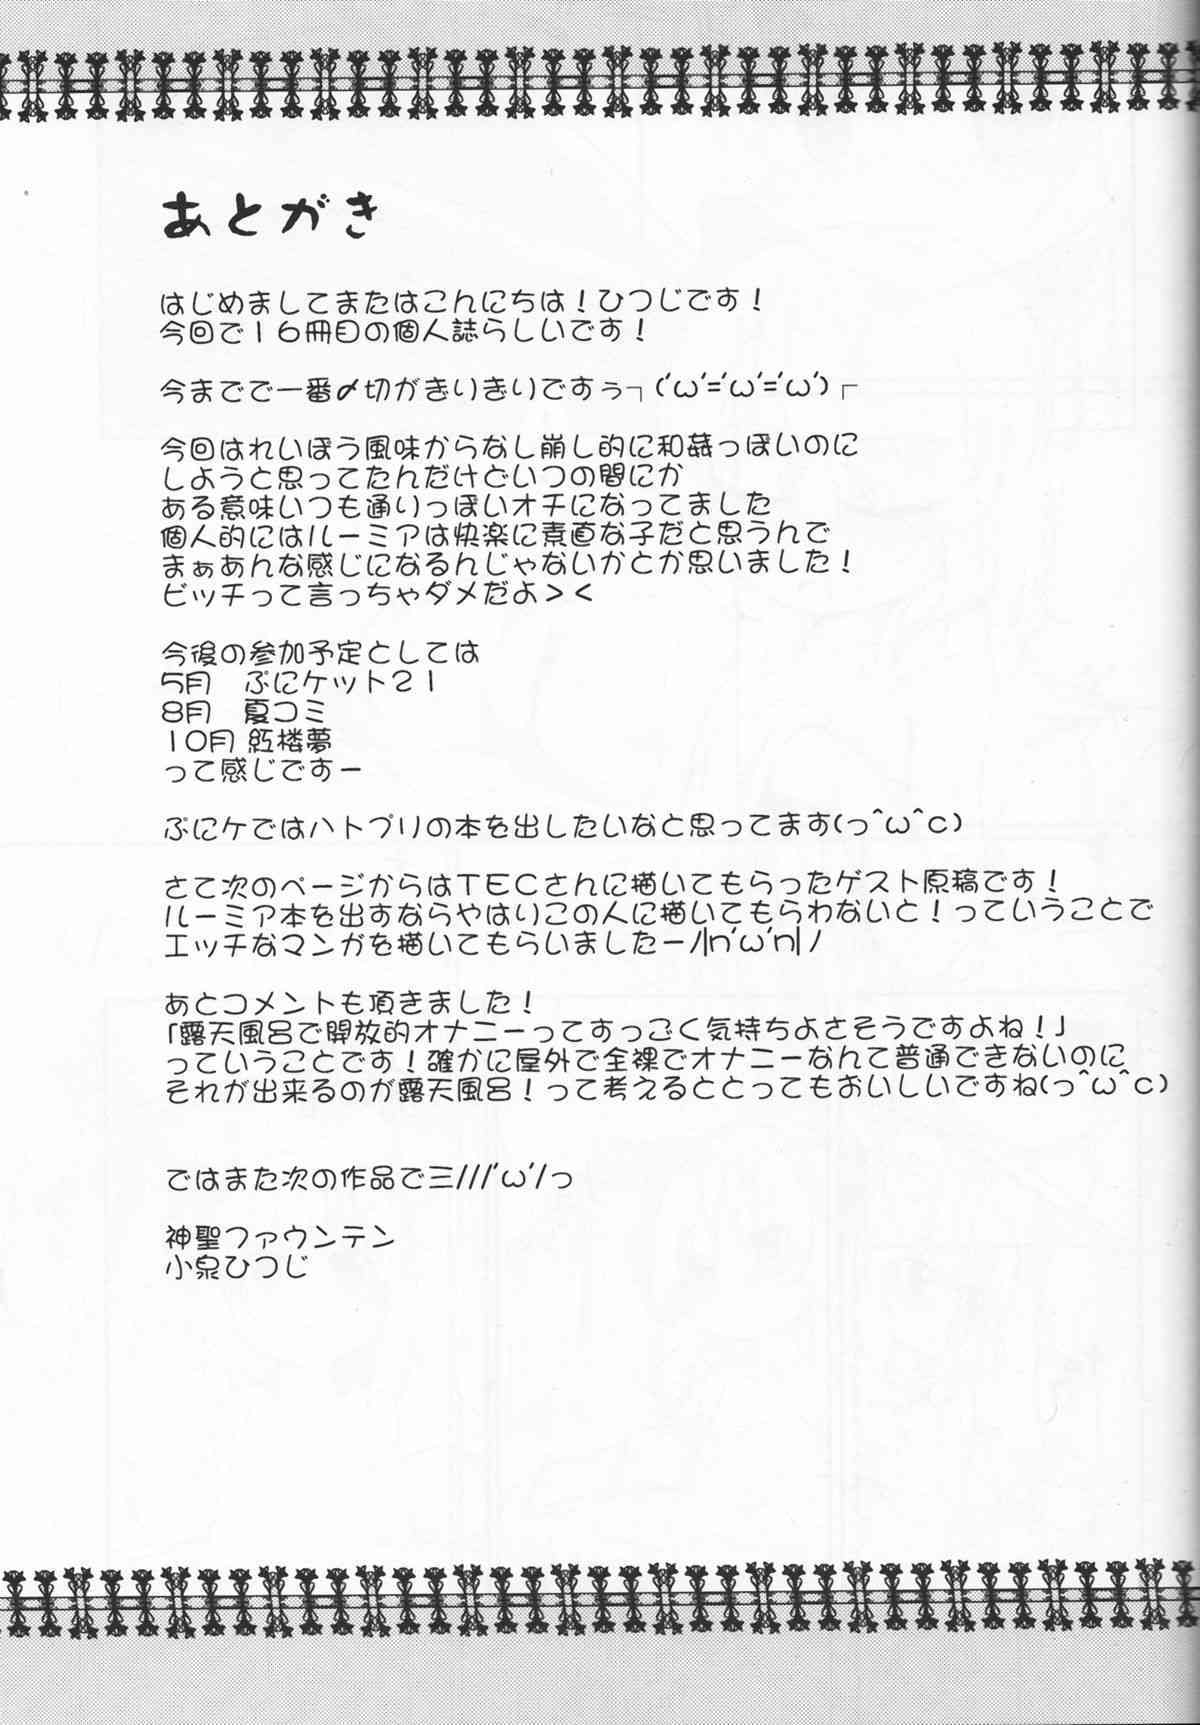 あとがき
はじめましてまたはこんにちは！ひつじです！
今回で１６冊目の個人誌らしいです！
今までで一番〆切がきりきりですぅ┐('ω'='ω'='ω')┌
今回はれいぽう風味からなし崩し的に和姦っぽいのに
しようと思ってたんだけどいつの間にか
ある意味いつも通りっぽいオチになってました
個人的にはルーミアは快楽に素直な子だと思うんで
まぁあんな感じになるんじゃないかとか思いました！
ビッチって言っちゃダメだよ＞＜
今後の参加予定としては
５月　ぷにケット２１
８月　夏コミ
１０月 紅楼夢
って感じですー
ぷにケではハトプリの本を出したいなと思ってます(っ^ω^c)
さて次のページからはＴＥＣさんに描いてもらったゲスト原稿です！
ルーミア本を出すならやはりこの人に描いてもらわないと！っていうことで
エッチなマンガを描いてもらいましたーﾉ|n'ω'n|ﾉ
あとコメントも頂きました！
「露天風呂で開放的オナニーってすっごく気持ちよさそうですよね！」
っていうことです！確かに屋外で全裸でオナニーなんて普通できないのに
それが出来るのが露天風呂！って考えるととってもおいしいですね(っ^ω^c)
ではまた次の作品で三///'ω'/っ
神聖ファウンテン
小泉ひつじ